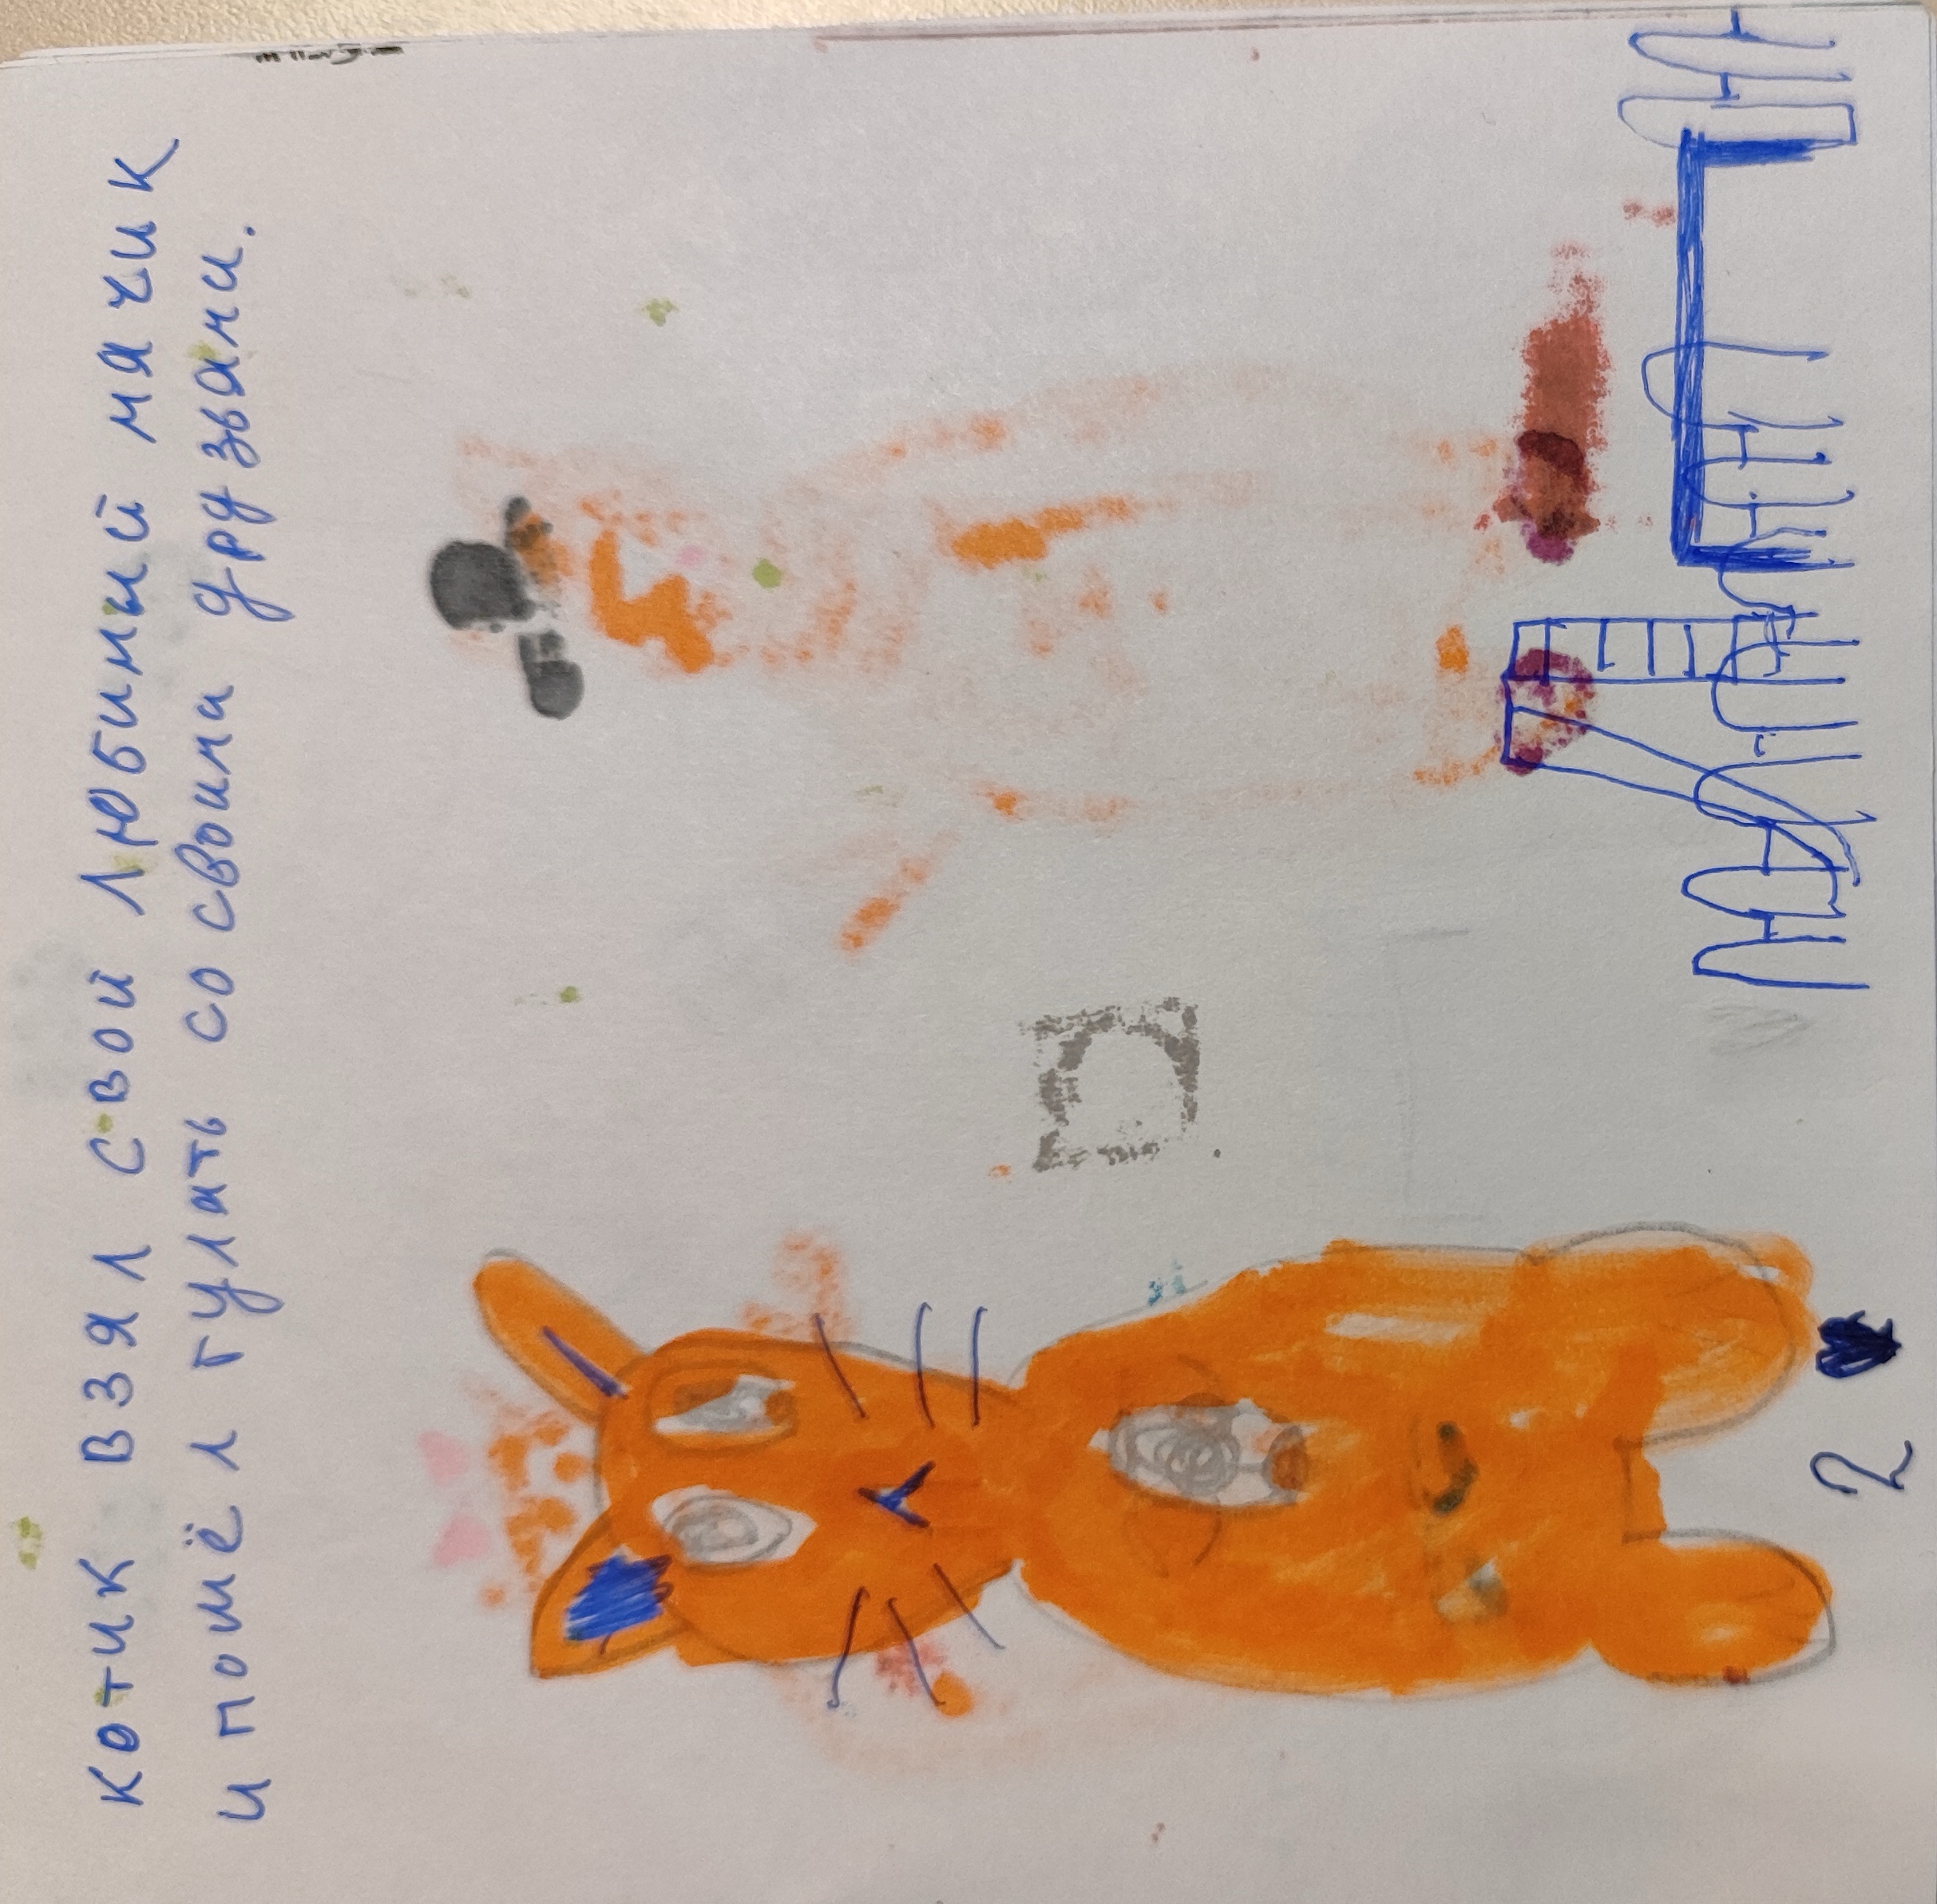 котик взял свой любимый мячик
и пошёл гулять со своими друзьями.
2